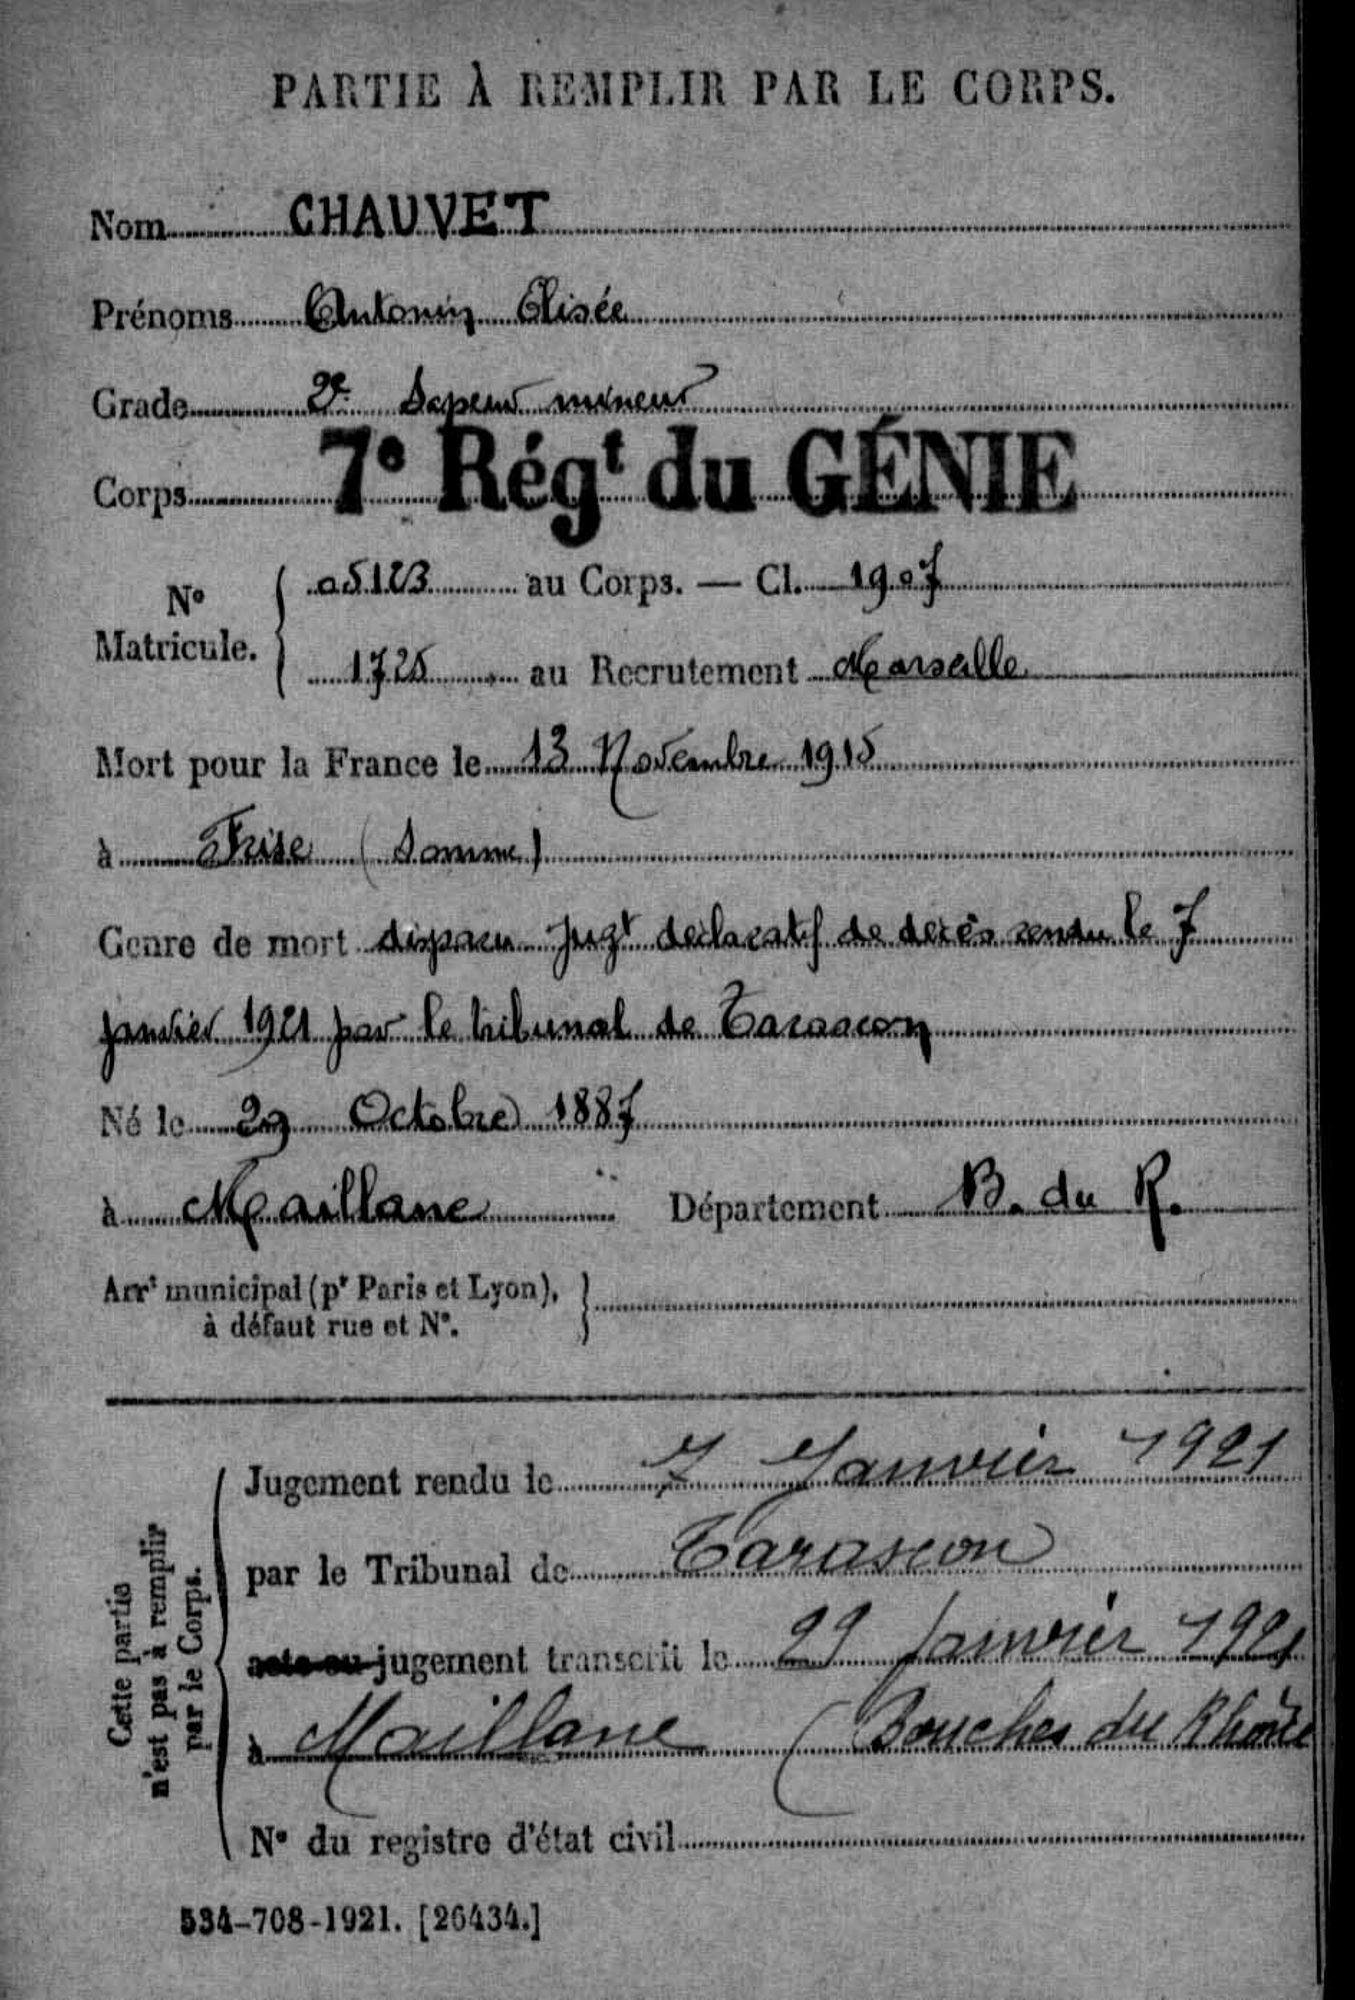 PARTIE À REMPLIR PAR LE CORPS.
Nom CHAUVET
Prénoms Antonin Elisée
Grade 2e Sapeur mineur
Corps 7e Régt du GÉNIE
No Matricule. { 05123 au Corps. — Cl. 1907
1725 au Recrutement Marseille
Mort pour la France le 13 Novembre 1915
à Frise (Somme)
Genre de mort disparu Jugt déclaratif de décès rendu le 7
janvier 1921 par le tribunal de Tarascon
Né le 29 Octobre 1887
à Maillane Département B. du R.
Arrt municipal (pr Paris et Lyon), }
à défaut rue et No.
Cette partie
n'est pas à remplir
par le Corps.
Jugement rendu le 7 Janvier 1921
par le Tribunal de Tarascon
acte ou jugement transcrit le 29 janvier 1921
à Maillane (Bouches du Rhône
No du registre d'état civil
534-708-1921. [26434.]